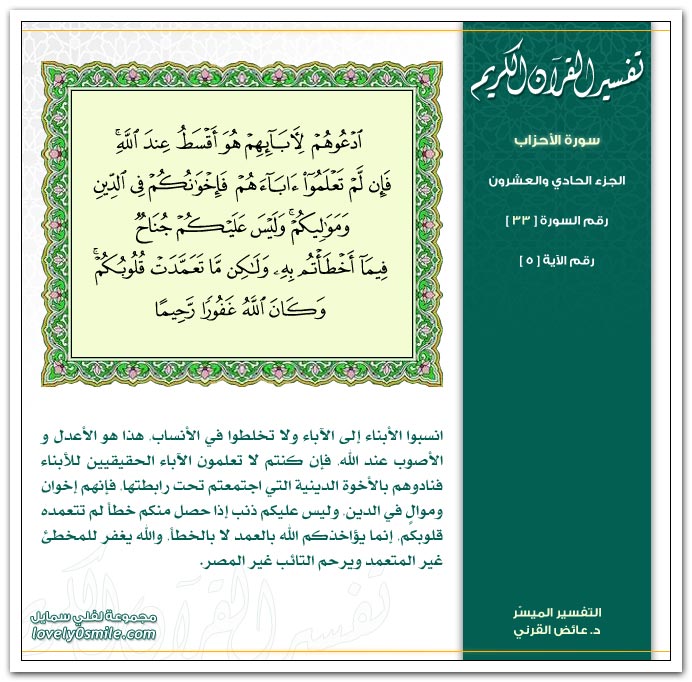 تفسير القرآن الكريم
سورة الأحزاب
الجزء الحادي والعشرون
رقم السورة [ ٣٣ ]
رقم الآية [ ٥ ]
ٱدۡعُوهُمۡ لِأٓبَآئِهِمۡ هُوَ أَقۡسَطُ عِندَ ٱللَّهِۚ
فَإِن لَّمۡ تَعۡلَمُوٓاْ ءَابَآءَهُمۡ فَإِخۡوَٰنُكُمۡ فِي ٱلدِّينِ
وَمَوَٰلِيكُمۡۚ وَلَيۡسَ عَلَيۡكُمۡ جُنَاحٞ
فِيمَآ أَخۡطَأۡتُم بِهِۦ وَلَٰكِن مَّا تَعَمَّدَتۡ قُلُوبُكُمۡۚ
وَكَانَ ٱللَّهُ غَفُورٗا رَّحِيمًا
انسبوا الأبناء إلى الآباء ولا تخلطوا في الأنساب، هذا هو الأعدل و
الأصوب عند الله، فإن كنتم لا تعلمون الآباء الحقيقيين للأبناء
فنادوهم بالأخوة الدينية التي اجتمعتم تحت رابطتها، فإنهم إخوان
وموالٍ في الدين، وليس عليكم ذنب إذا حصل منكم خطأً لم تتعمده
قلوبكم، إنما يؤاخذكم الله بالعمد لا بالخطأ، والله يغفر للمخطئ
غير المتعمد ويرحم التائب غير المصر.
تفسير القرآن الكريم
التفسير الميسّر
د. عائض القرني
مجموعة لفلي سمايل
lovely0smile.com